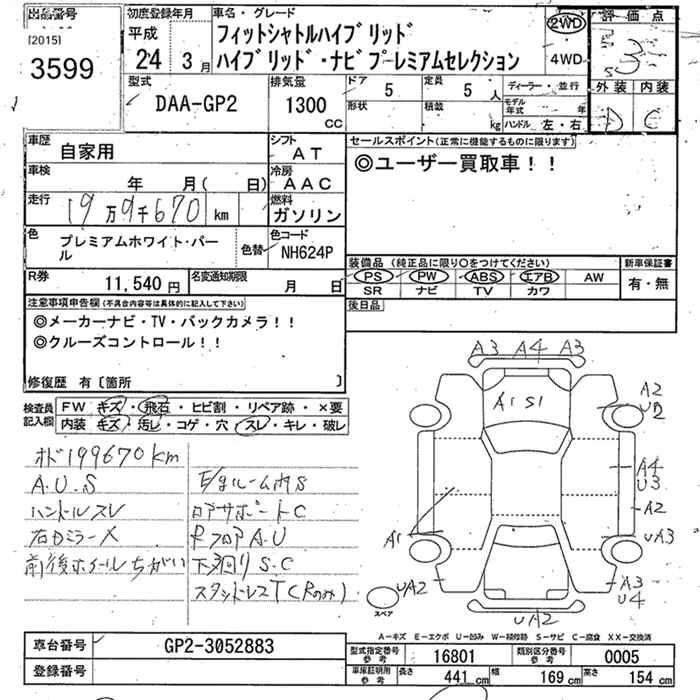 出品番号
[2015]
3599
初度登録年月
平成
24 3月
車名・グレード
フィットシャトルハイブリッド
ハイブリッド・ナビプレミアムセレクション
2WD
4WD
評価点
3
外装 内装
D C
型式
DAA-GP2
排気量
1300
CC
ドア
5
定員
5 人
形状
積載
kg
ディーラー・並行
モデル年式 年
ハンドル 左・右
車歴
自家用
シフト
AT
車検
年 月( 日)
冷房
AAC
走行
19万9千670 km
燃料
ガソリン
色
プレミアムホワイト・パール
色替
色コード
NH624P
R券
11,540 円
名変通知期限
月 日
セールスポイント(正常に機能するものに限ります)
◎ユーザー買取車！！
装備品 (純正品に限り○をつけてください)
PS PW ABS エアB AW
SR ナビ TV カワ
新車保証書
有・無
後日品
注意事項申告欄(不具合内容等は具体的に記入して下さい)
◎メーカーナビ・TV・バックカメラ！！
◎クルーズコントロール！！
修復歴 有〔箇所 〕
検査員
記入欄
FW キズ・飛石・ヒビ割・リペア跡・×要
内装 キズ・汚レ・コゲ・穴・スレ・キレ・破レ
オド199670km
A.U.S
ハンドルスレ
右Dミラー×
前後ホイールちがい
E/gルーム内S
ロアサポートC
RフロアA.U
下回りS.C
スタッドレスT(Rのみ)
A3 A4 A3
A1 S1
A2
U2
A4
U3
A2
UA3
A1
UA2
A3
U4
UA2
スペア
A－キズ E－エクボ U－凹み W－補修跡 S－サビ C－腐食 XX－交換済
車台番号
GP2-3052883
登録番号
型式指定番号
参考
16801
類別区分番号
参考
0005
車庫証明用
参考
長さ
441 cm
幅
169 cm
高さ
154 cm